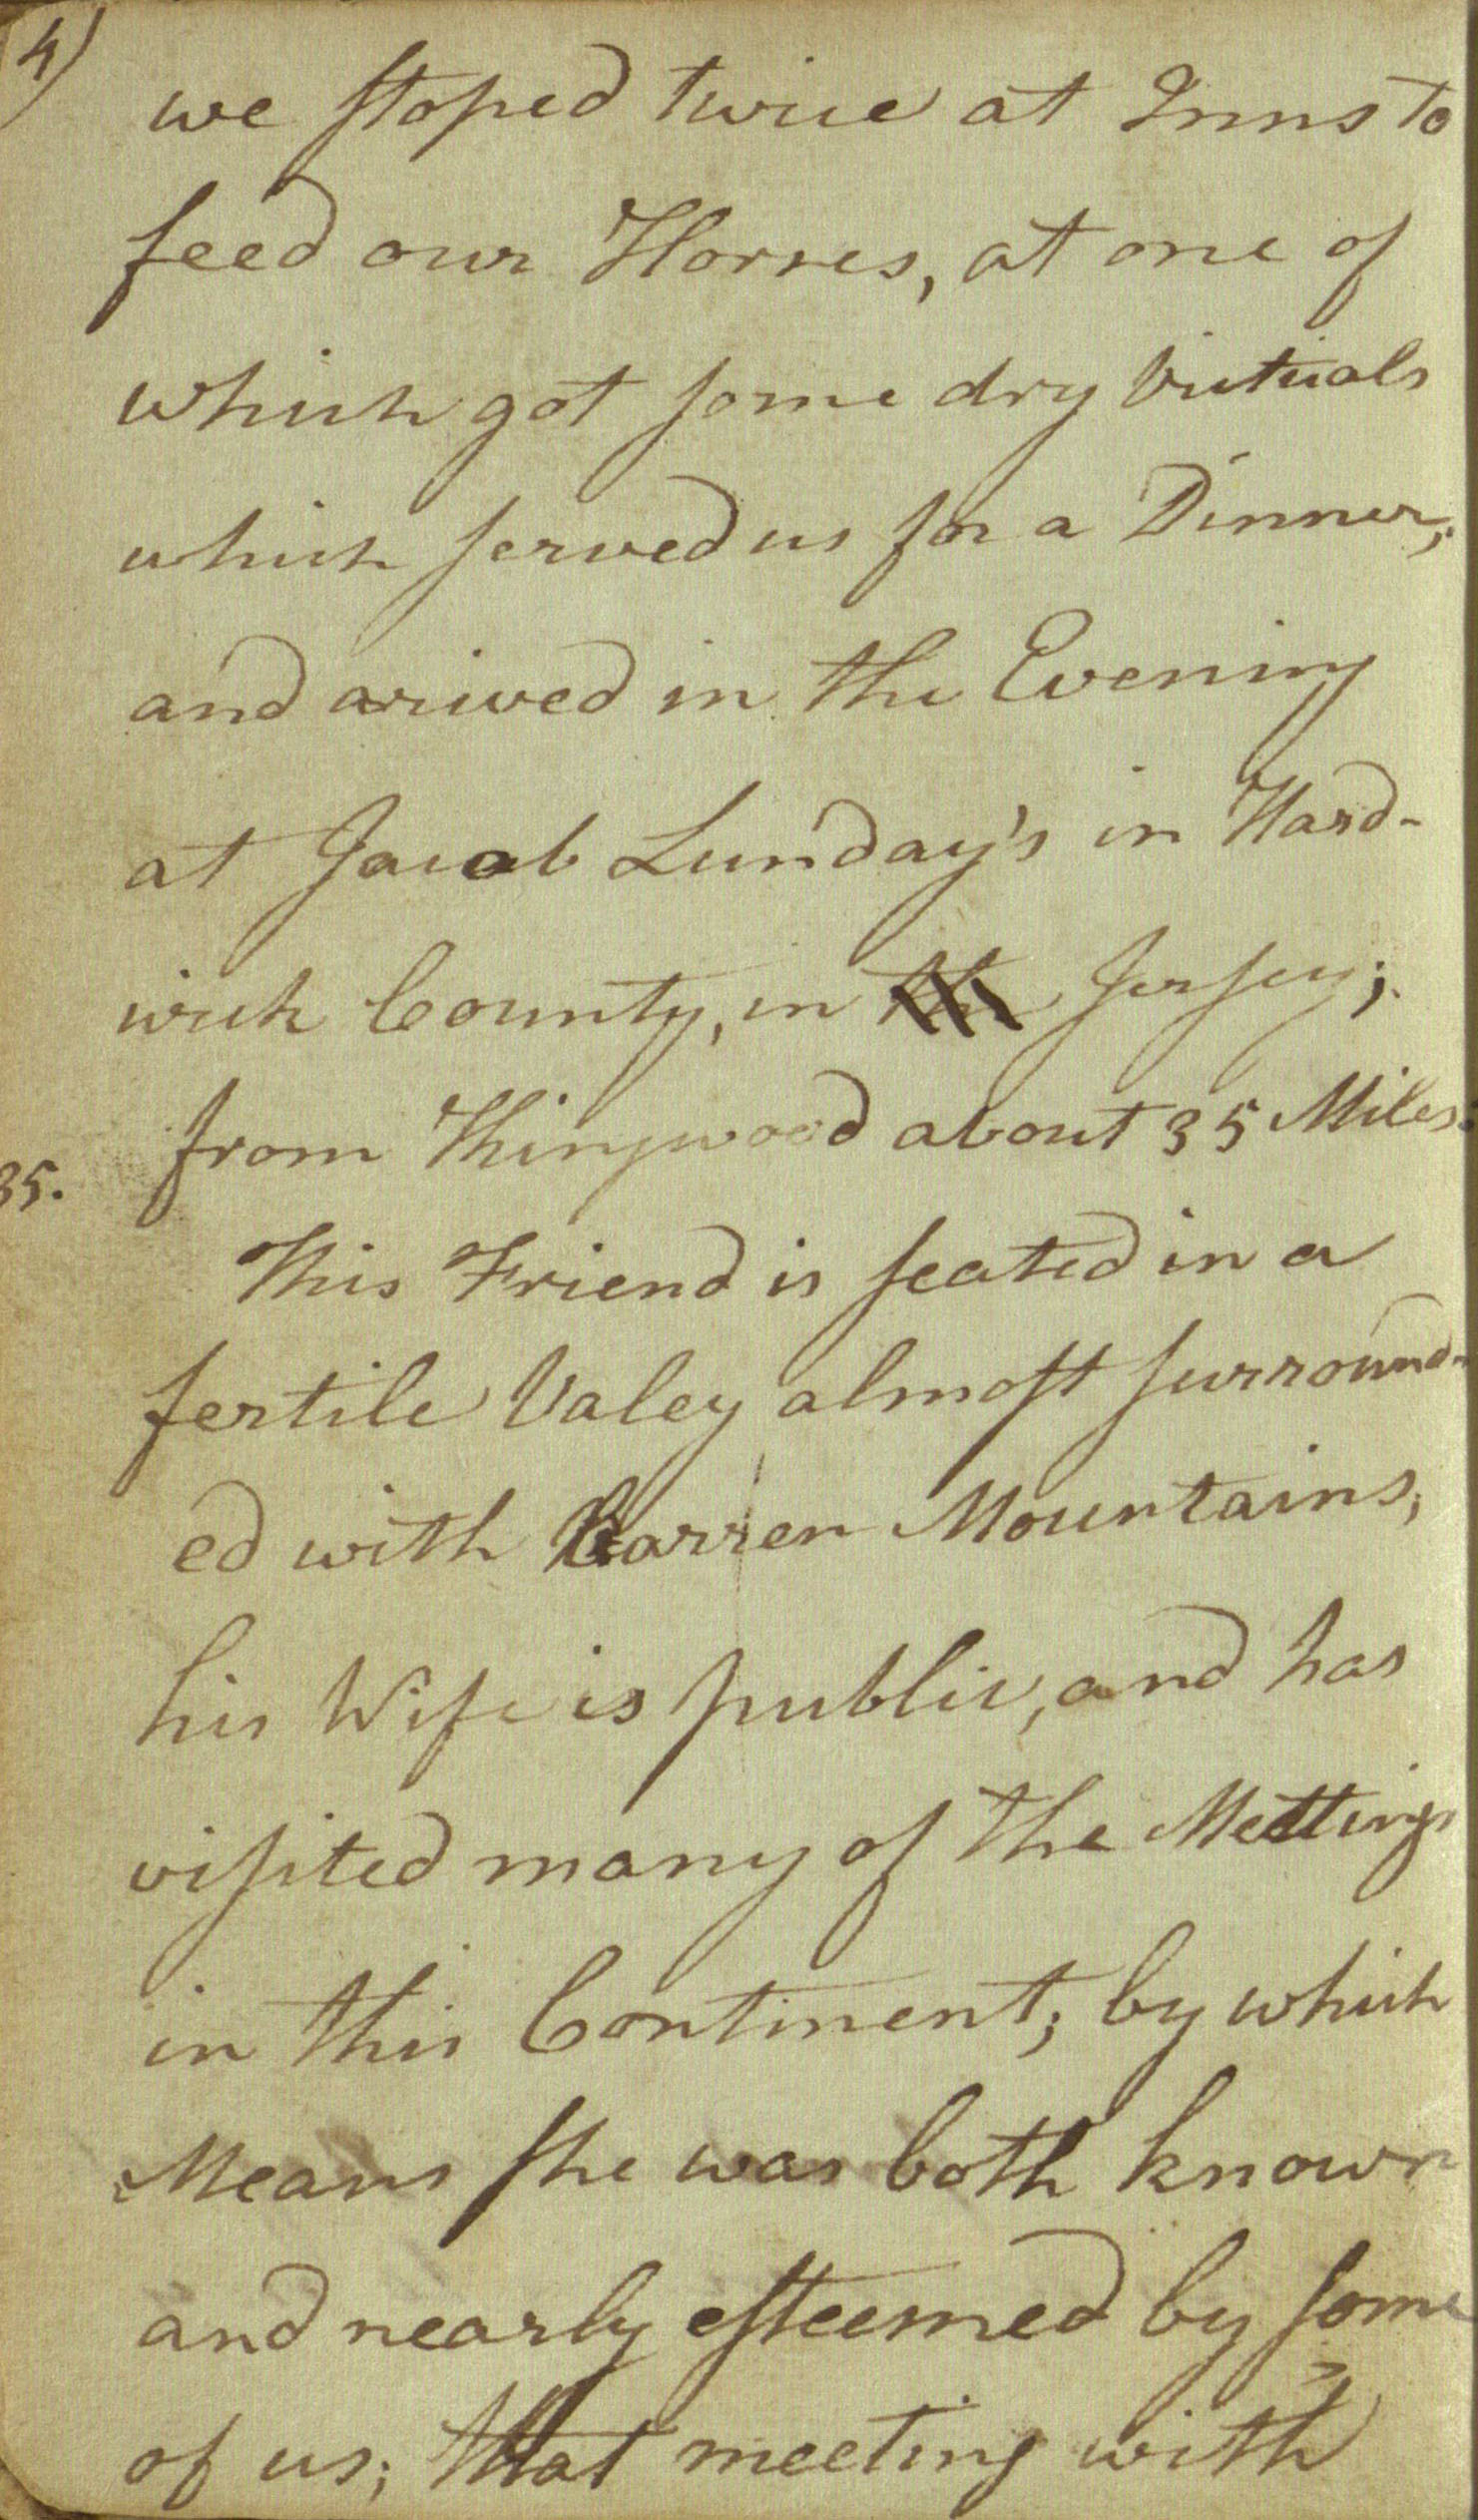 4)
we stoped twice at Inns to
feed our Horses, at one of
which got some dry Victuals
which served us for a Dinner,
and arived in the Evening
at Jacob Lunday's in Hard-
wick County, in the Jersey;
from Thingwood about 35 Miles:
35.
This Friend is seated in a
fertile Valey almost surround-
ed with barren Mountains,
his Wife is public, and has
visited many of the Mettings
in this Continent; by which
Means she was both known
and nearly esteemed by some
of us; that meeting with